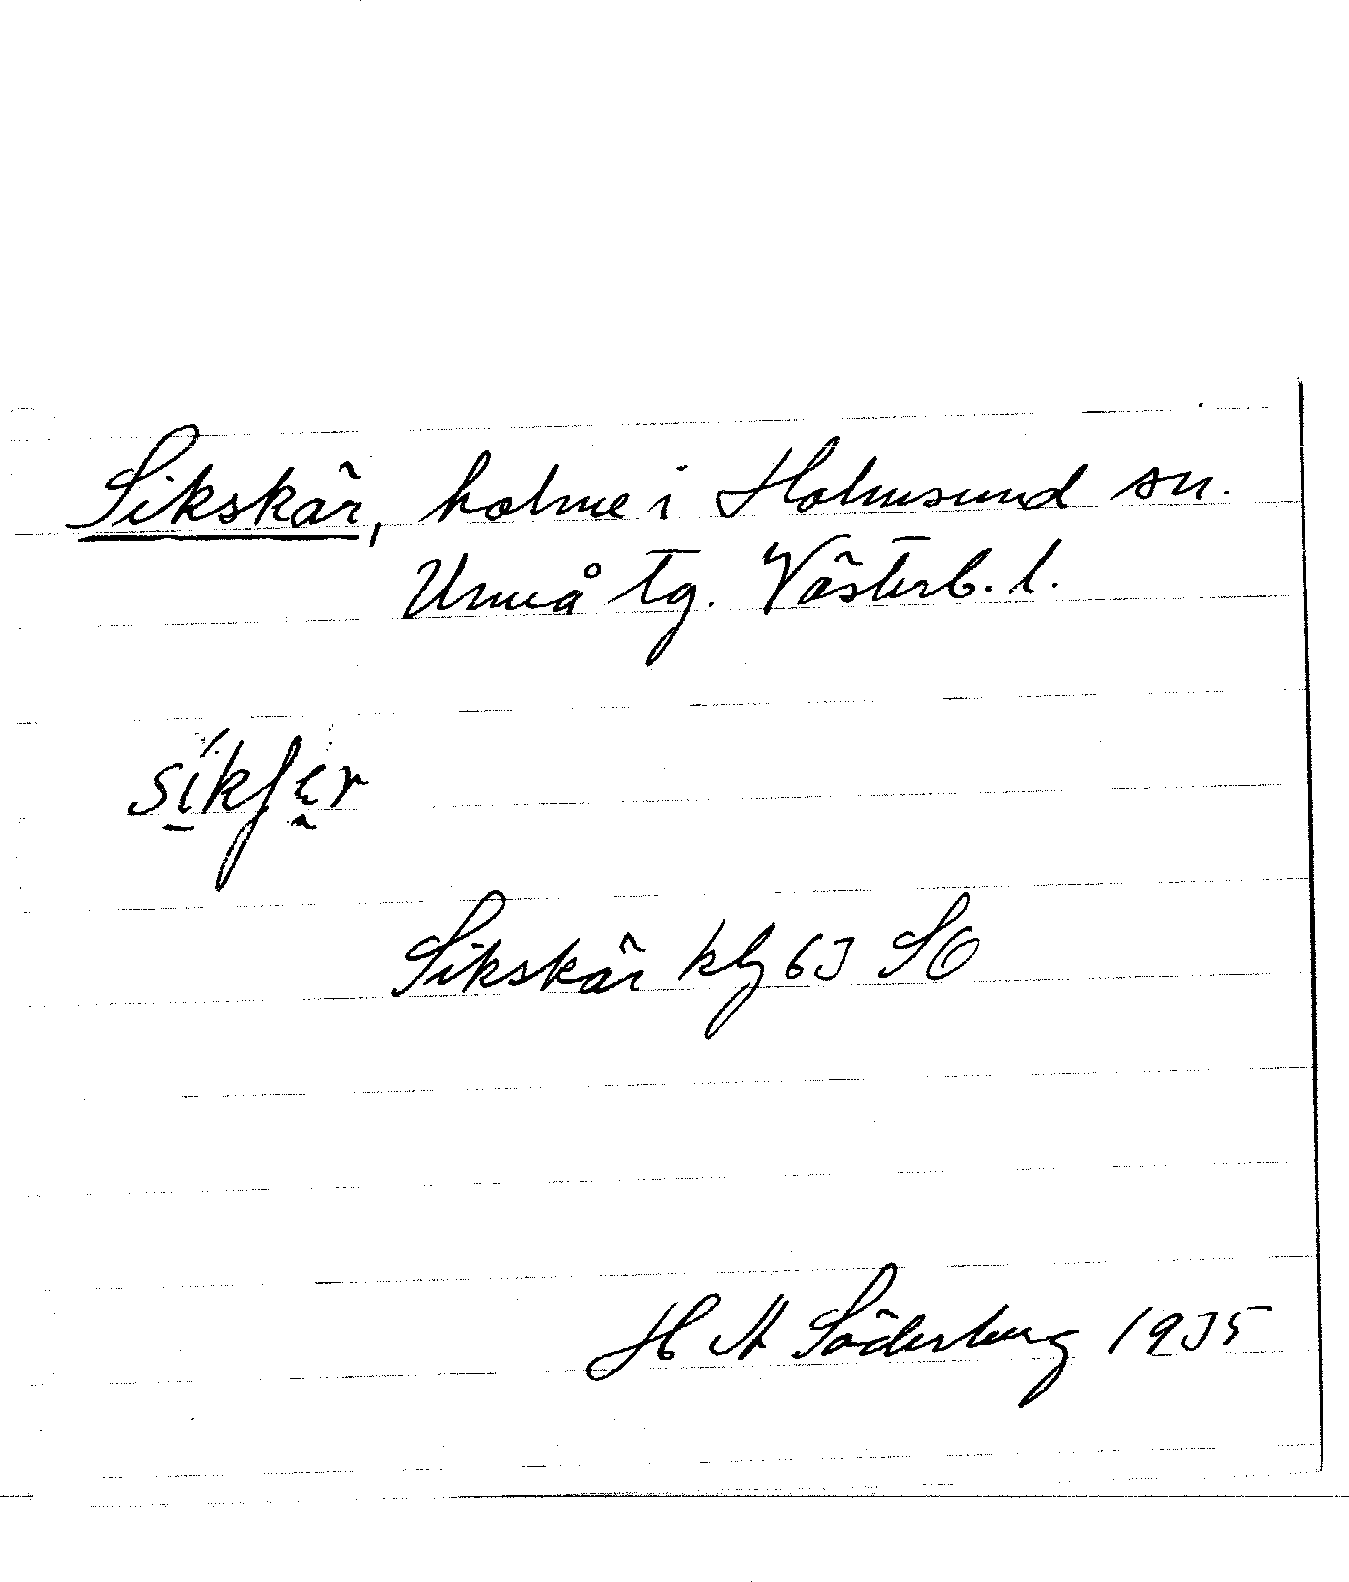 Sikskär, holme i Holmsund sn.
Umeå tg. Västerb. l.
Sikskär kbl 63 SO
H A Söderberg 1935